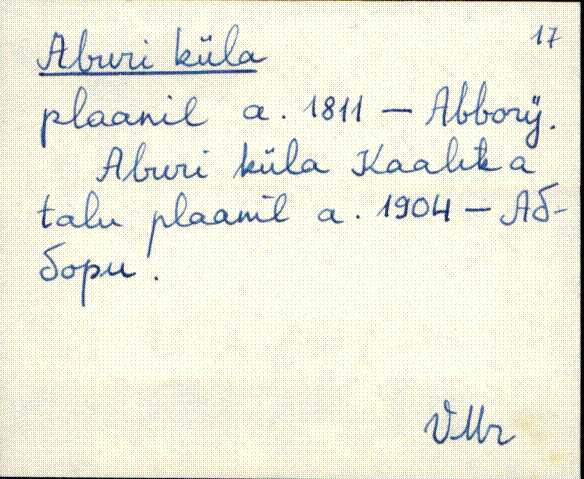 17
Aburi küla
plaanil a. 1811 – Abborÿ.
Aburi küla Kaalika
talu plaanil a. 1904 – Аб-
бори.
VMr